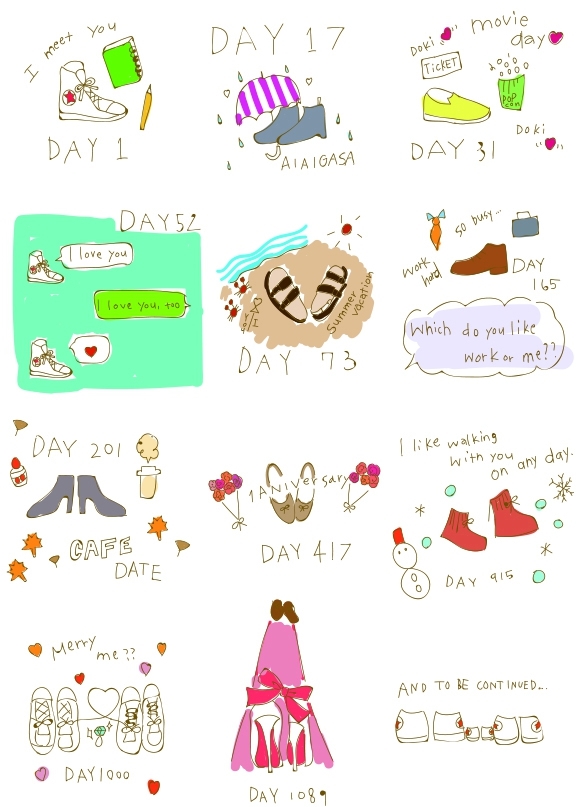 I meet you
DAY 1
DAY 17
AIAIGASA
movie
day
Doki
TICKET
POP
corn
Doki
DAY 31
DAY 52
I love you
I love you, too
Summer
vacation
DAY 73
so busy...
work
hard
DAY
165
Which do you like
work or me??
DAY 201
CAFE
DATE
1 ANIVersary
DAY 417
I like walking
with you
on any day.
DAY 915
Merry
me??
DAY 1000
DAY 1089
AND TO BE CONTINUED...